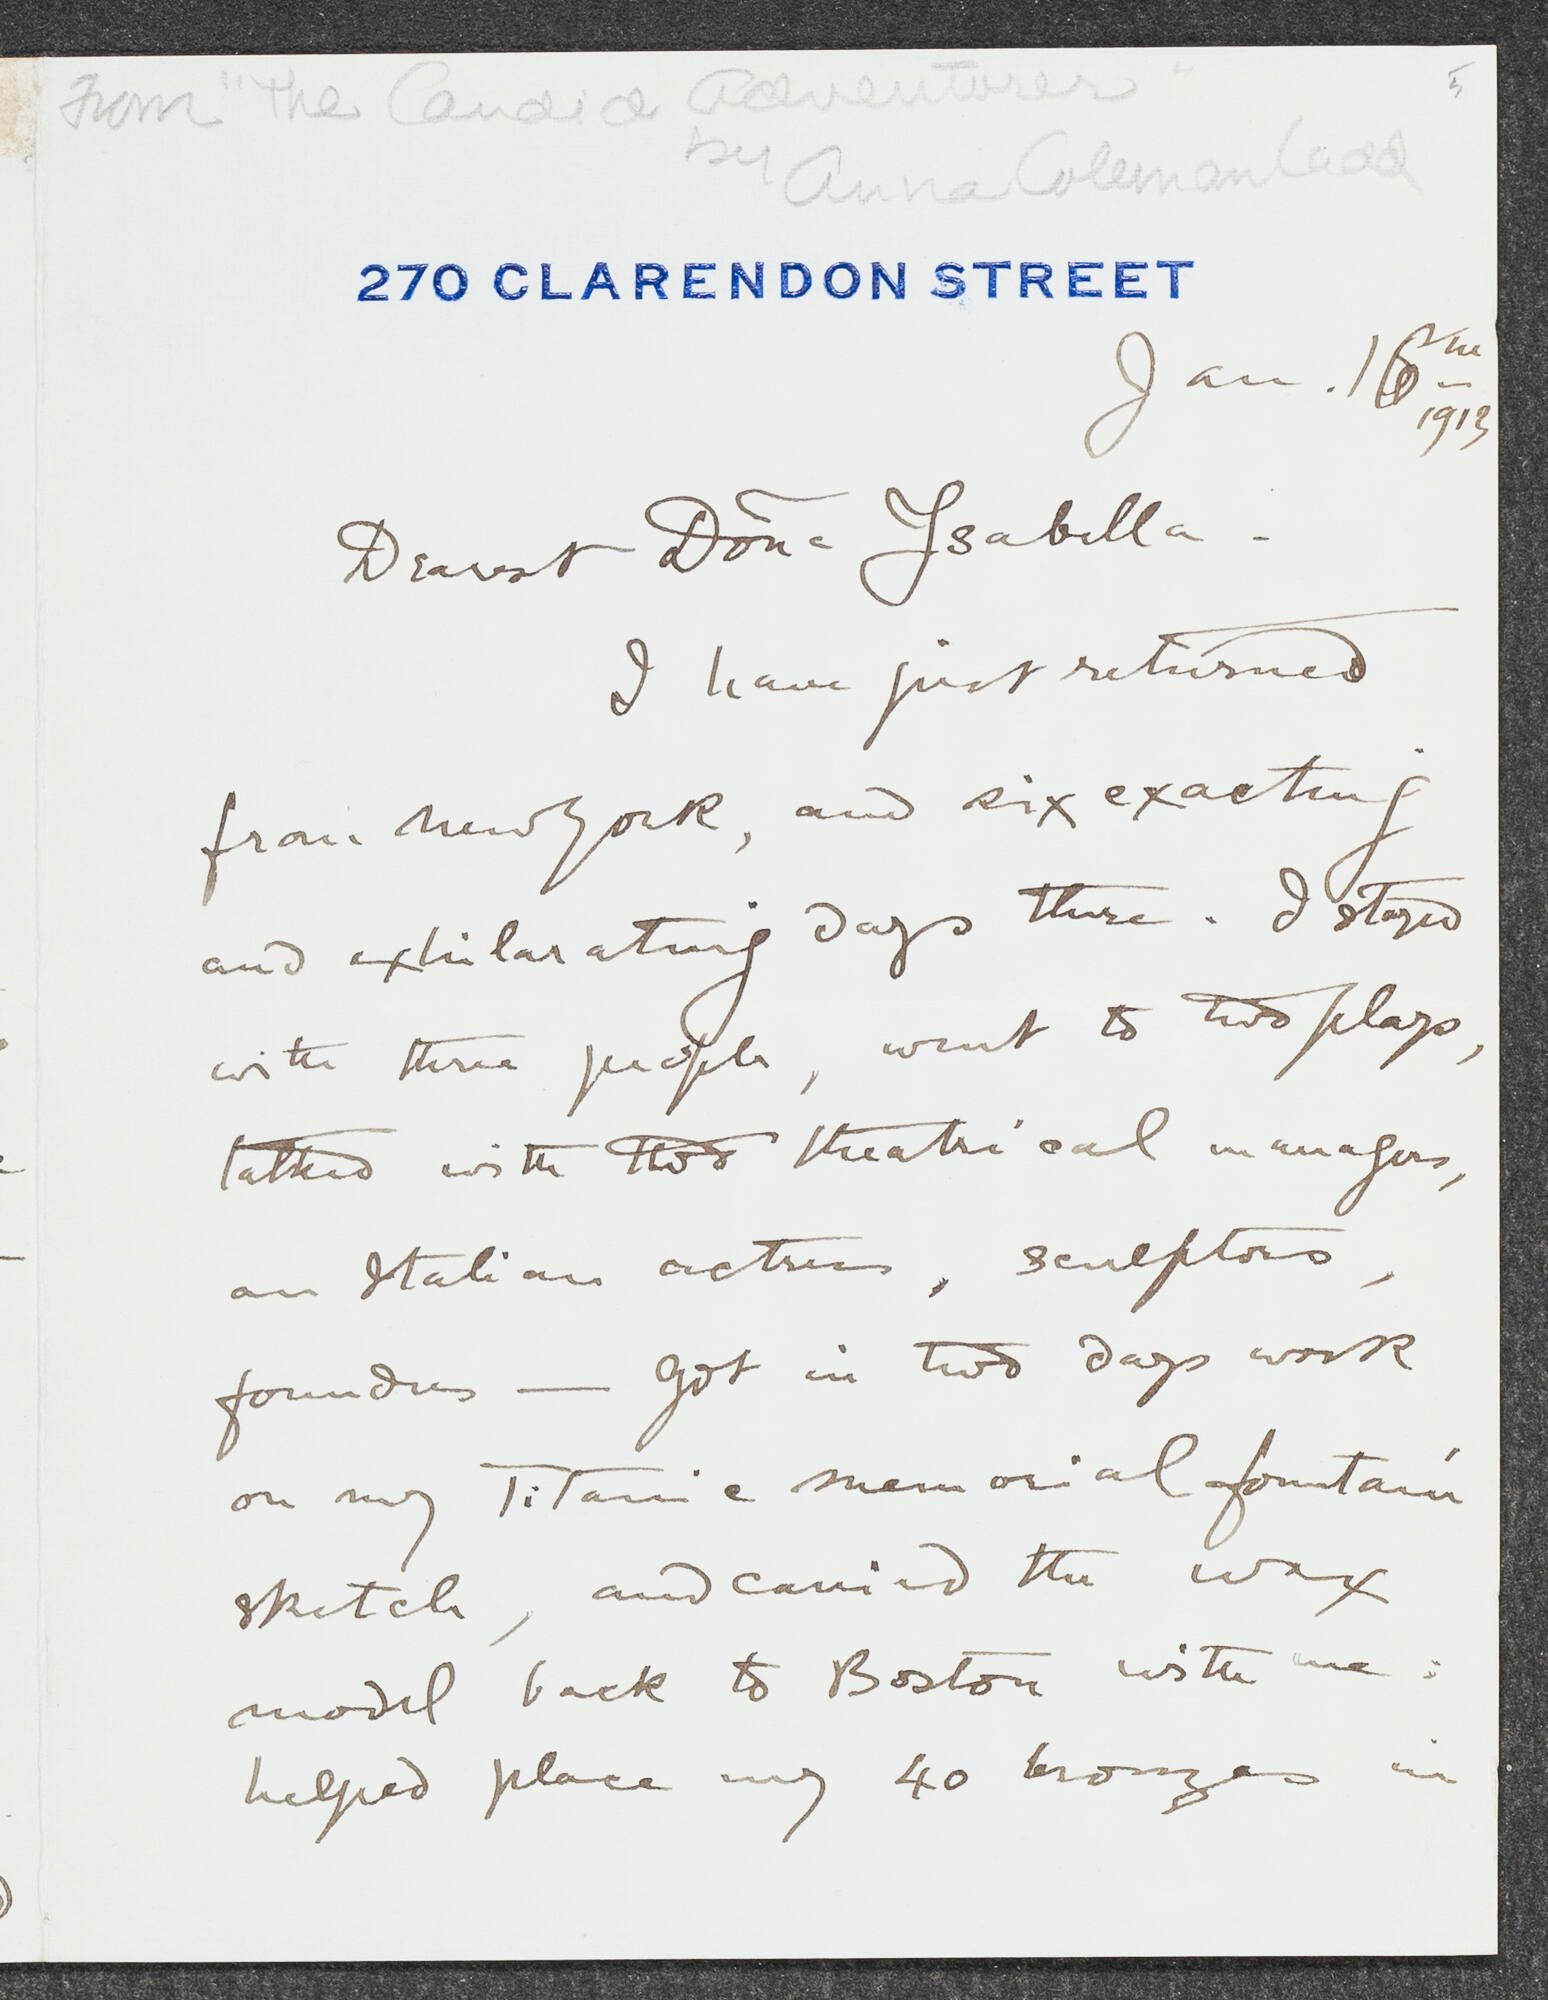 From "The Candid Adventurer"
by Anna Coleman Ladd
5
270 CLARENDON STREET
Jan. 16th
1913
Dearest Doña Ysabella -
I have just returned
from New York, and six exacting
and exhilarating days there. I stayed
with three people, went to two plays,
talked with two theatrical managers,
an Italian actress, sculptors,
foundries — got in two days work
on my Titanic memorial fountain
sketch, and carried the wax
model back to Boston with me :
helped place my 40 bronzes in